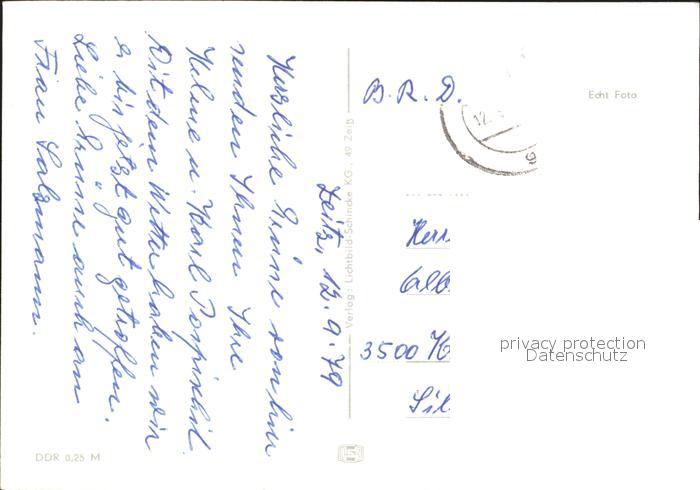 Zeitz, 12.9.79
Herzliche Grüsse von hier
senden Ihnen Ihre
Helene u. Karl Pospischil.
Mit dem Wetter haben wir
es bis jetzt gut getroffen.
Liebe Grüsse auch an
Frau Salzmann.
DDR 0,25 M
Verlag: Lichtbild-Schincke KG., 49 Zeitz
B. R. D.
12.
Echt Foto
Herr
3500
privacy protection
Datenschutz